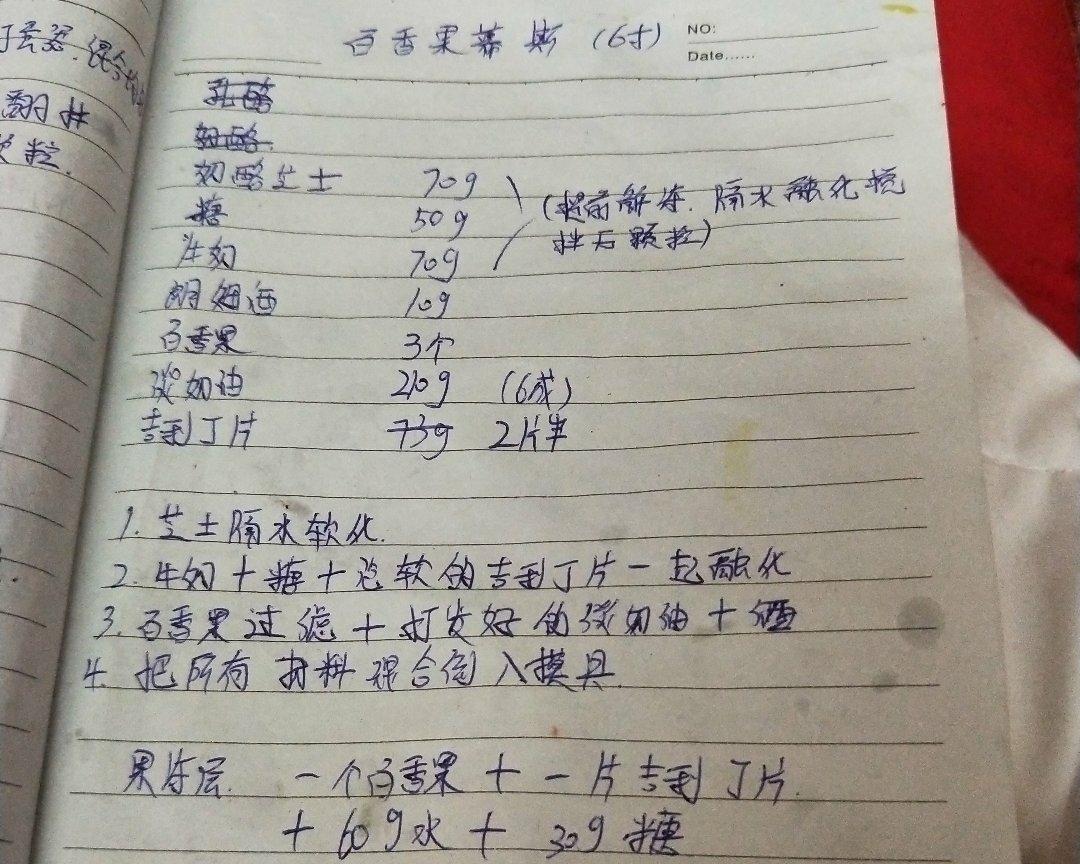 百香果慕斯 (6寸)
NO:
Date......
乳酪
奶酪
奶酪芝士 70g
糖 50g
(提前解冻. 隔水融化搅
拌后颗粒)
牛奶 70g
朗姆酒 10g
百香果 3个
淡奶油 210g (6成)
吉利丁片 73g 2片半
1. 芝士隔水软化.
2. 牛奶+糖+泡软的吉利丁片一起融化
3. 百香果过滤+打发好的淡奶油+酒
4. 把所有材料混合倒入模具.
果冻层. 一个百香果+一片吉利丁片.
+60g水+30g糖
翻拌
粒.